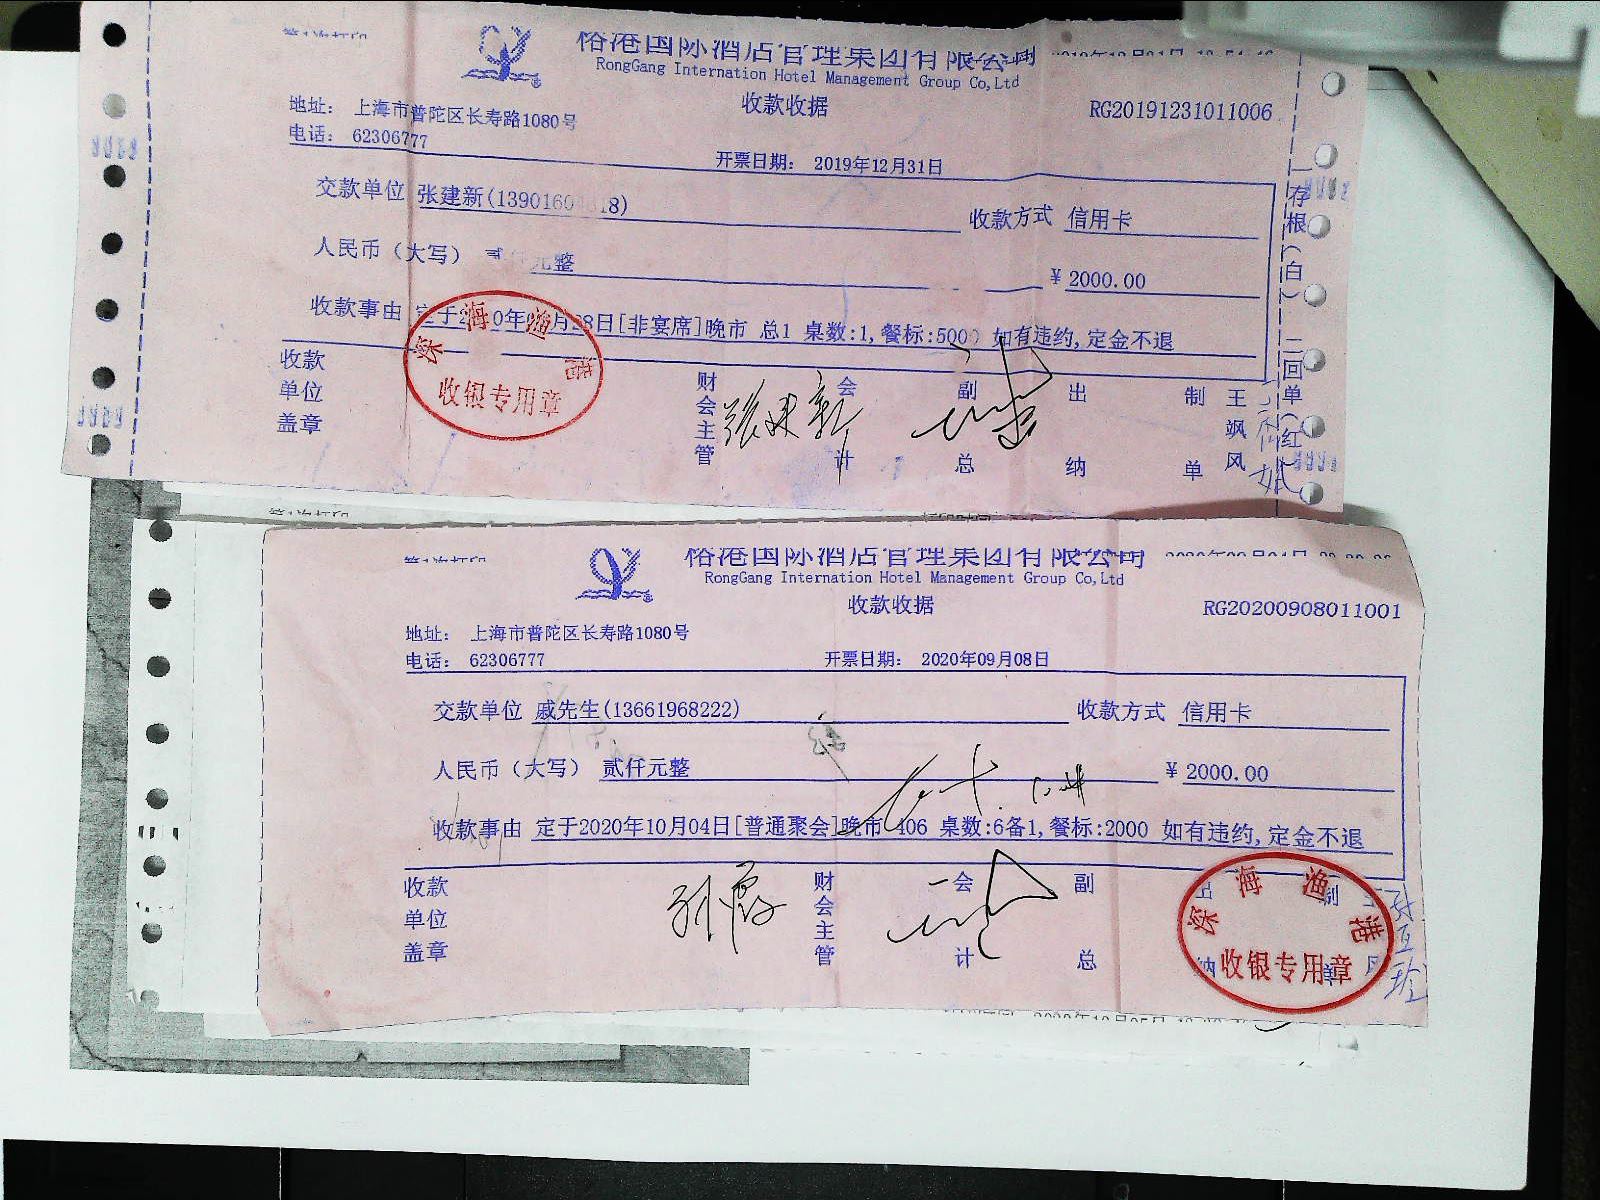 榕港国际酒店管理集团有限公司
RongGang Internation Hotel Management Group Co,Ltd
收款收据
RG20191231011006
地址： 上海市普陀区长寿路1080号
电话： 62306777
开票日期： 2019年12月31日
交款单位 张建新
收款方式 信用卡
人民币（大写） 元整
￥2000.00
收款事由 [非宴席]晚市 总1 桌数:1,餐标:5000 如有违约,定金不退
收款单位盖章
深海渔港
收银专用章
财会主管 张建新
会计
副总
出纳
制单 王飒风
存根(白) 二回单(红)
第1次打印
榕港国际酒店管理集团有限公司
RongGang Internation Hotel Management Group Co,Ltd
收款收据
RG20200908011001
地址： 上海市普陀区长寿路1080号
电话： 62306777
开票日期： 2020年09月08日
交款单位 戚先生(13661968222)
收款方式 信用卡
人民币（大写） 贰仟元整
￥2000.00
收款事由 定于2020年10月04日[普通聚会]晚市 406 桌数:6备1,餐标:2000 如有违约,定金不退
收款单位盖章
孙霞
财会主管
会计
副总
深海渔港
收银专用章